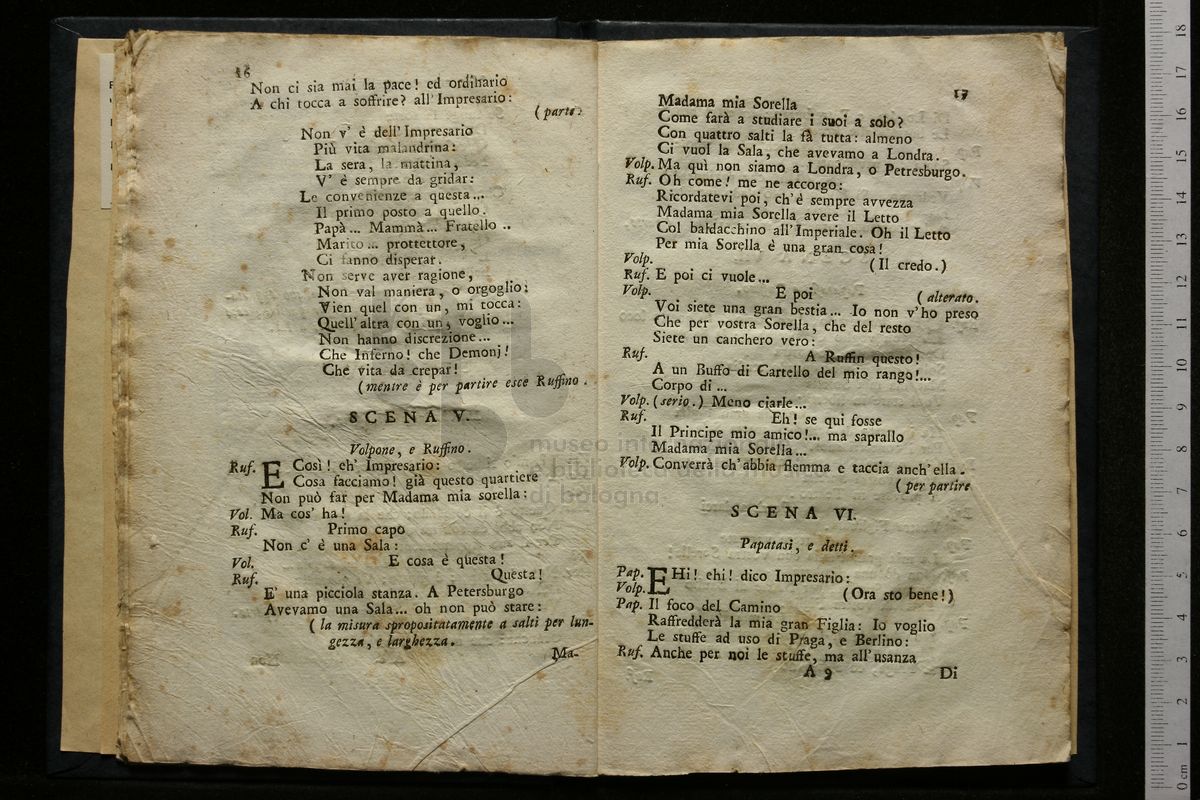 16
Non ci sia mai la pace! ed ordinario
A chi tocca a soffrire? all' Impresario:
(parte.
Non v' è dell' Impresario
Più vita malandrina:
La sera, la mattina,
V' è sempre da gridar:
Le convenienze a questa...
Il primo posto a quello.
Papà... Mammà... Fratello ..
Marito ... prottettore,
Ci fanno disperar.
Non serve aver ragione,
Non val maniera, o orgoglio:
Vien quel con un, mi tocca:
Quell' altra con un, voglio...
Non hanno discrezione...
Che Inferno! che Demonj!
Che vita da crepar!
(mentre è per partire esce Ruffino.
SCENA V.
Volpone, e Ruffino.
Ruf. E Così! eh' Impresario:
Cosa facciamo! già questo quartiere
Non può far per Madama mia sorella:
Vol. Ma cos' ha!
Ruf. Primo capo
Non c' è una Sala:
Vol. E cosa è questa!
Ruf. Questa!
E' una picciola stanza. A Petersburgo
Avevamo una Sala... oh non può stare:
(la misura spropositatamente a salti per lun-
gezza, e larghezza.
Ma-
17
Madama mia Sorella
Come farà a studiare i suoi a solo?
Con quattro salti la fà tutta: almeno
Ci vuol la Sala, che avevamo a Londra.
Volp. Ma quì non siamo a Londra, o Petresburgo.
Ruf. Oh come! me ne accorgo:
Ricordatevi poi, ch'è sempre avvezza
Madama mia Sorella avere il Letto
Col baldacchino all'Imperiale. Oh il Letto
Per mia Sorella è una gran cosa!
Volp. (Il credo.)
Ruf. E poi ci vuole...
Volp. E poi (alterato.
Voi siete una gran bestia... Io non v'ho preso
Che per vostra Sorella, che del resto
Siete un canchero vero:
Ruf. A Ruffin questo!
A un Buffo di Cartello del mio rango!...
Corpo di ...
Volp. (serio.) Meno ciarle...
Ruf. Eh! se qui fosse
Il Principe mio amico!... ma saprallo
Madama mia Sorella...
Volp. Converrà ch'abbia flemma e taccia anch'ella.
(per partire
SCENA VI.
Papatasi, e detti.
Pap. EHi! ehi! dico Impresario:
Volp. (Ora sto bene!)
Pap. Il foco del Camino
Raffredderà la mia gran Figlia: Io voglio
Le stuffe ad uso di Praga, e Berlino:
Ruf. Anche per noi le stuffe, ma all'usanza
A 9 Di